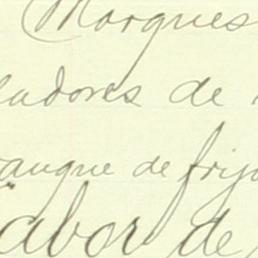 Marques
adores de
anque de frijo
Labor de